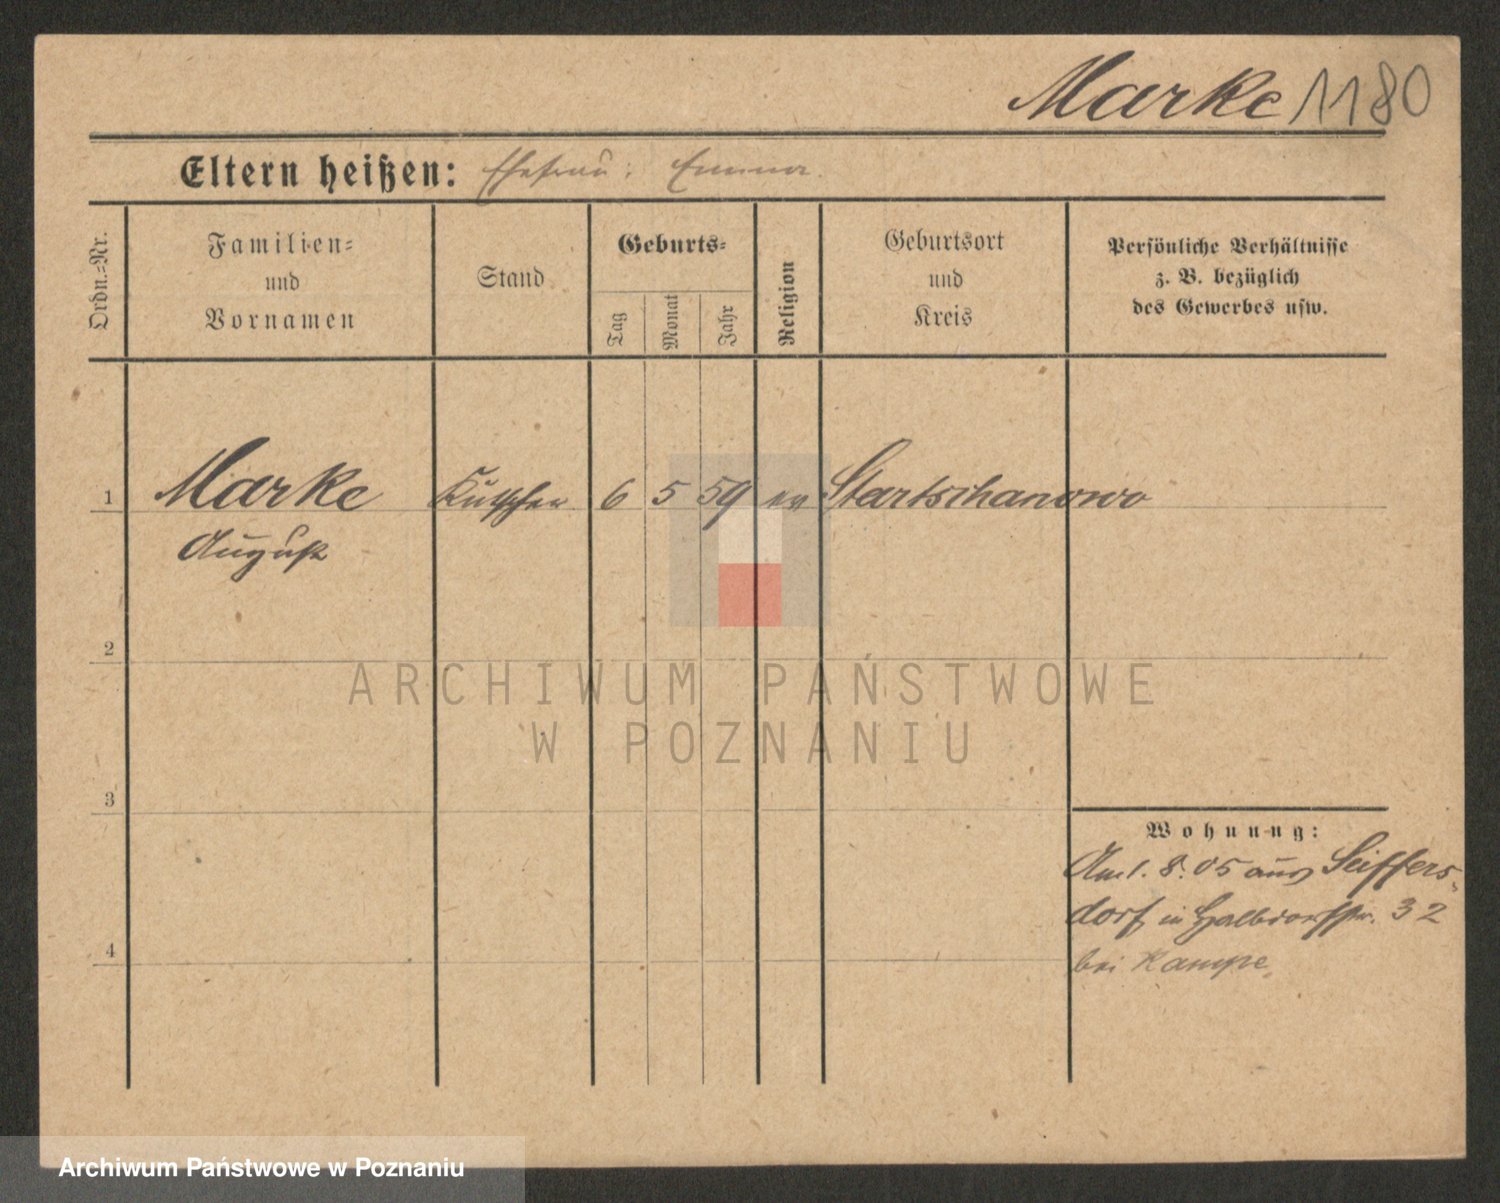 Marke 1180
Eltern heißen: Ehefrau: Emma.
Ordn.=Nr.
Familien=
und
Vornamen
Stand
Geburts=
Tag
Monat
Jahr
Religion
Geburtsort
und
Kreis
Persönliche Verhältnisse
z. B. bezüglich
des Gewerbes usw.
1 Marke Kutscher 6 5 59 ev Startschanowo
August
2
3
4
Wohnung:
Am 1. 8. 05 aus Seiffers-
dorf in Halbdorfstr. 32
bei Kampe
ARCHIWUM PAŃSTWOWE
W POZNANIU
Archiwum Państwowe w Poznaniu